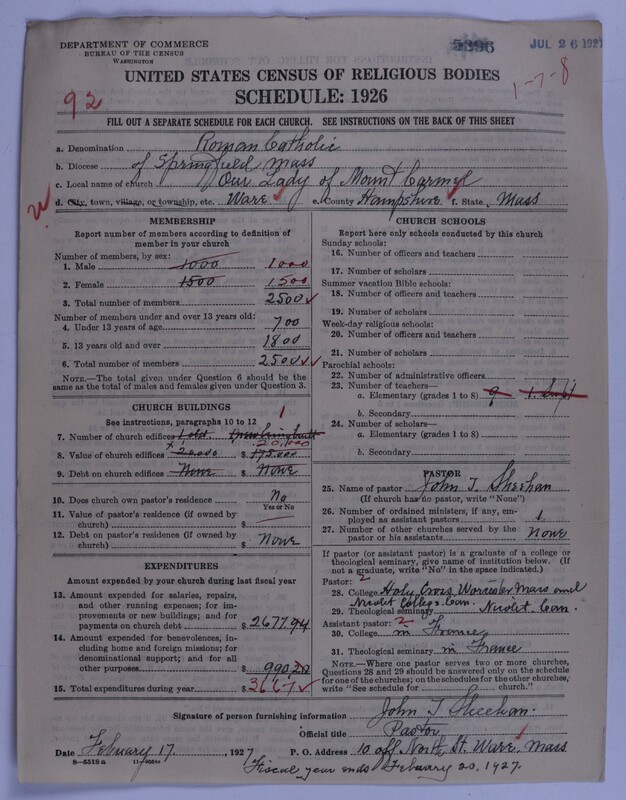 DEPARTMENT OF COMMERCE
BUREAU OF THE CENSUS
WASHINGTON
5396
JUL 26 1927
UNITED STATES CENSUS OF RELIGIOUS BODIES
SCHEDULE: 1926
92
1-7-8
FILL OUT A SEPARATE SCHEDULE FOR EACH CHURCH. SEE INSTRUCTIONS ON THE BACK OF THIS SHEET
a. Denomination Roman Catholic
b. Diocese of Springfield Mass
c. Local name of church Our Lady of Mount Carmel
d. City, town, village, or township, etc. Ware e. County Hampshire f. State Mass
MEMBERSHIP
Report number of members according to definition of
member in your church
Number of members, by sex:
1. Male 1000 1000
2. Female 1500 1500
3. Total number of members 2500
Number of members under and over 13 years old:
4. Under 13 years of age 700
5. 13 years old and over 1800
6. Total number of members 2500
NOTE.—The total given under Question 6 should be the
same as the total of males and females given under Question 3.
CHURCH BUILDINGS
See instructions, paragraphs 10 to 12
1
7. Number of church edifices 1 old 1 new being built
20,000
8. Value of church edifices 20,000 $ 175,000
9. Debt on church edifices None $ None
10. Does church own pastor's residence No
Yes or No
11. Value of pastor's residence (if owned by
church) $
12. Debt on pastor's residence (if owned by
church) $ None
EXPENDITURES
Amount expended by your church during last fiscal year
13. Amount expended for salaries, repairs,
and other running expenses; for im-
provements or new buildings; and for
payments on church debt $ 2677 94
14. Amount expended for benevolences,
including home and foreign missions; for
denominational support; and for all
other purposes 990 20
15. Total expenditures during year $ 3667
CHURCH SCHOOLS
Report here only schools conducted by this church
Sunday schools:
16. Number of officers and teachers
17. Number of scholars
Summer vacation Bible schools:
18. Number of officers and teachers
19. Number of scholars
Week-day religious schools:
20. Number of officers and teachers
21. Number of scholars
Parochial schools:
22. Number of administrative officers
23. Number of teachers—
a. Elementary (grades 1 to 8) 9 1. Supt
b. Secondary
24. Number of scholars—
a. Elementary (grades 1 to 8)
b. Secondary
PASTOR
25. Name of pastor John T Sheehan
(If church has no pastor, write "None")
26. Number of ordained ministers, if any, em-
ployed as assistant pastors 1
27. Number of other churches served by the
pastor or his assistants None
If pastor (or assistant pastor) is a graduate of a college or
theological seminary, give name of institution below. (If
not a graduate, write "No" in the space indicated.)
Pastor: 2
28. College Holy Cross Worcester Mass and
Nicolet College Can.
29. Theological seminary Nicolet Can.
Assistant pastor: 2
30. College in France
31. Theological seminary in France
NOTE.—Where one pastor serves two or more churches,
Questions 28 and 29 should be answered only on the schedule
for one of the churches; on the schedules for the other churches,
write "See schedule for church."
Signature of person furnishing information John T Sheehan.
Official title Pastor
Date February 17, 1927 P. O. Address 10 off North St. Ware, Mass
8—5518a
Fiscal year ends February 20, 1927.